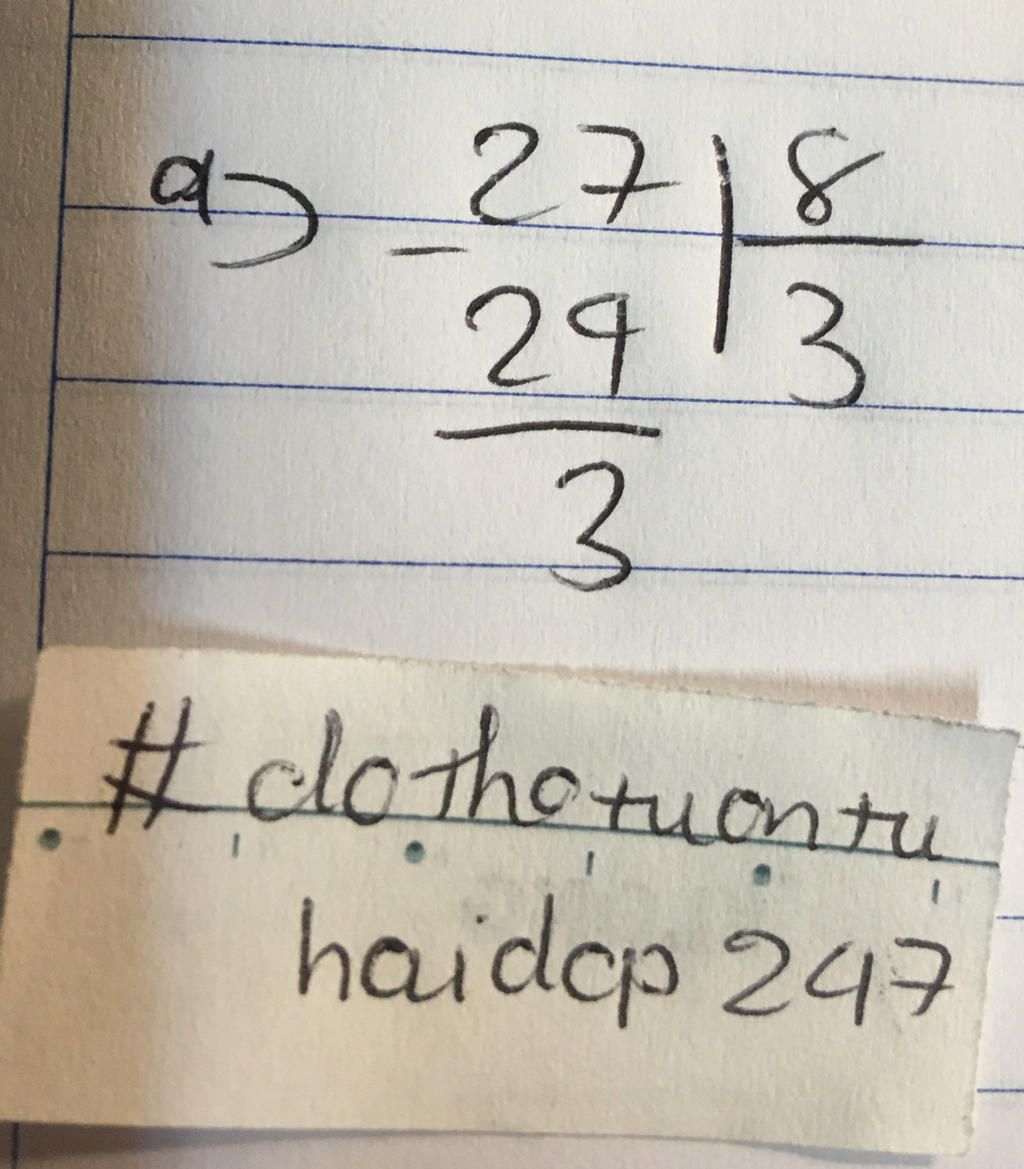 a) 27 | 8
- 24 3
3
#dothotuantu
hoidap247